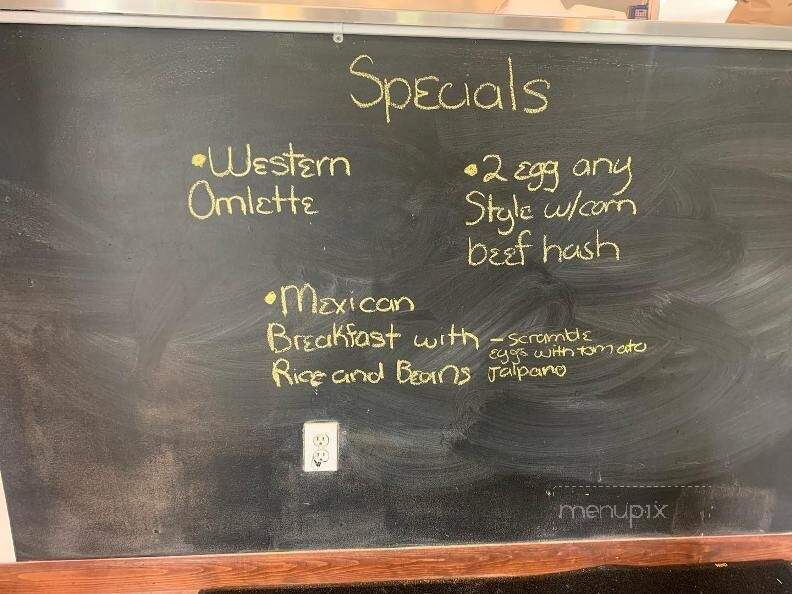 Specials
•Western
Omlette
•2 egg any
Style w/corn
beef hash
•Mexican
Breakfast with
Rice and Beans
-scramble
eggs with tomato
Jalpano
menupix